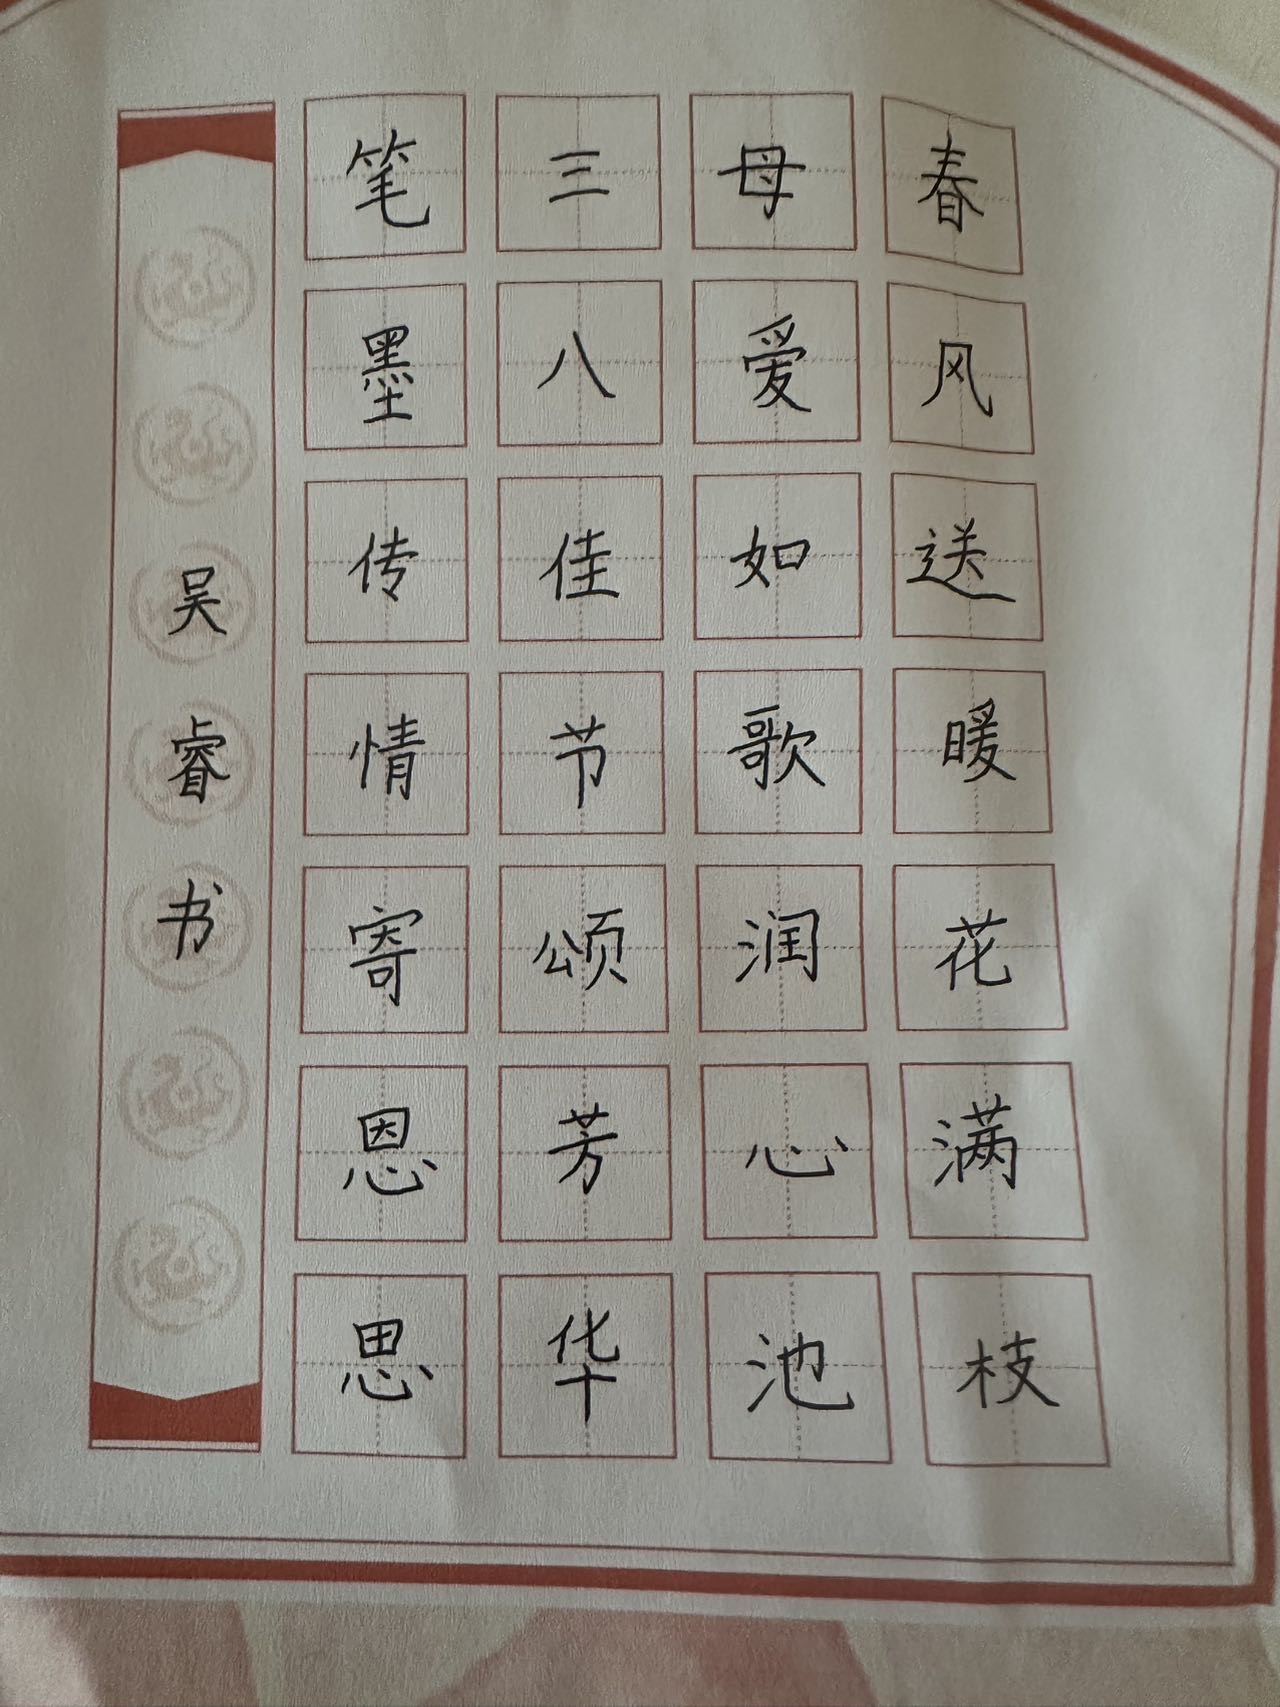 春风送暖花满枝
母爱如歌润心池
三八佳节颂芳华
笔墨传情寄恩思
吴睿书